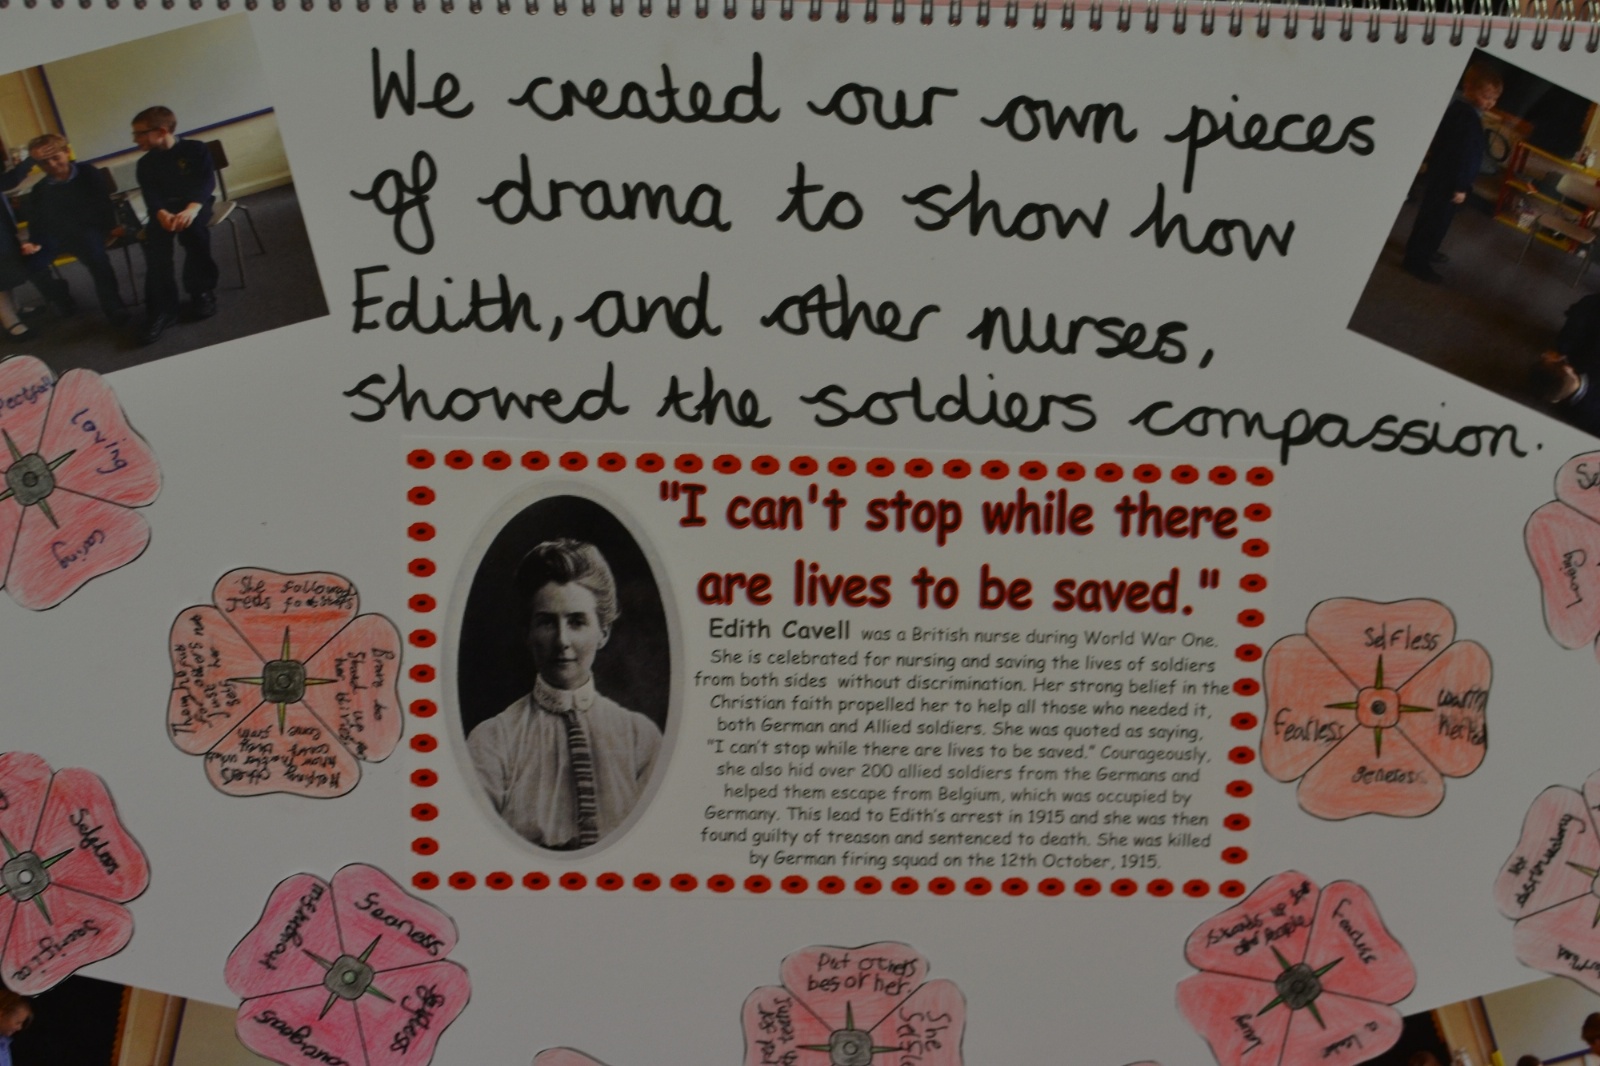 We created our own pieces
of drama to show how
Edith, and other nurses,
showed the soldiers compassion.
"I can't stop while there
are lives to be saved."
Edith Cavell was a British nurse during World War One.
She is celebrated for nursing and saving the lives of soldiers
from both sides without discrimination. Her strong belief in the
Christian faith propelled her to help all those who needed it,
both German and Allied soldiers. She was quoted as saying,
"I can't stop while there are lives to be saved." Courageously,
she also hid over 200 allied soldiers from the Germans and
helped them escape from Belgium, which was occupied by
Germany. This lead to Edith's arrest in 1915 and she was then
found guilty of treason and sentenced to death. She was killed
by German firing squad on the 12th October, 1915.
Loving
Caring
She followed
Brave to
Helping
others
Selfless
warm
Fearless
Selfless
Fearless
Stands up for
Fearless
Loving
Put others
She